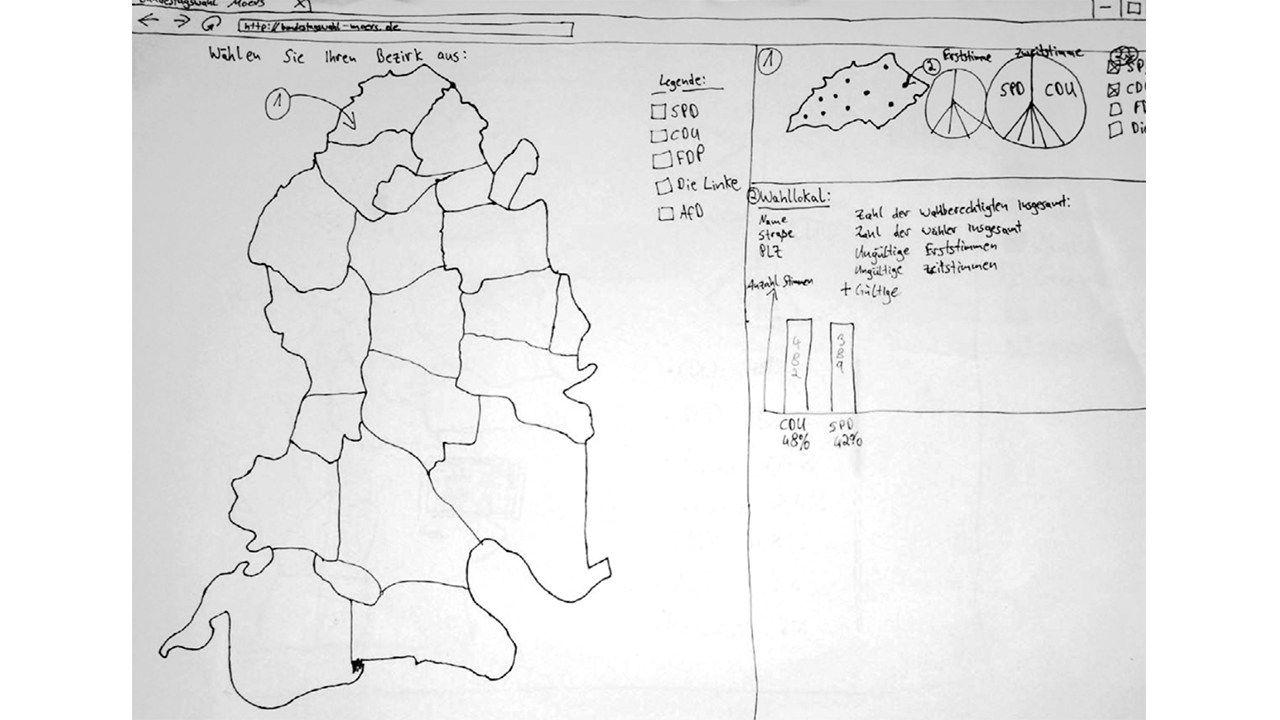 Bundestagswahl Moers X
http://bundestagswahl-moers.de
Wählen Sie Ihren Bezirk aus:
1
Legende:
SPD
CDU
FDP
Die Linke
AfD
1
2
Erststimme
Zweitstimme
SPD CDU
SP
CD
FD
Die
2 Wahllokal:
Name
Straße
PLZ
Zahl der Wahlberechtigten insgesamt:
Zahl der Wähler insgesamt
Ungültige Erststimmen
Ungültige Zeitstimmen
+ Gültige
Anzahl Stimmen
482
389
CDU SPD
48% 42%